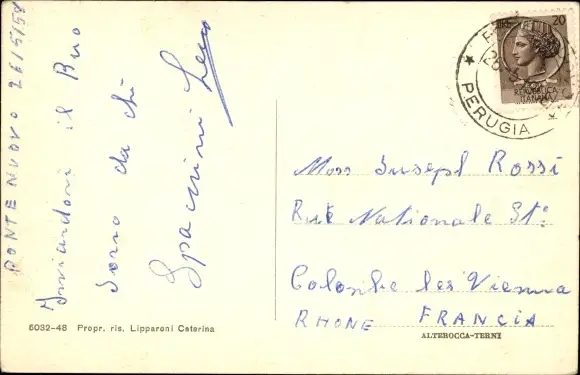 PONTE NUOVO 26/5/58
Inviandoni il Buo
Sorno da chi
Spaccini Leno
20
REPUBBLICA
ITALIANA
PERUGIA
Mosr Jusepl Rossi
Rue Nationale St:
Colombe les Vienna
RHONE FRANCIA
6032-48 Propr. ris. Lipparoni Caterina
ALTEROCCA-TERNI